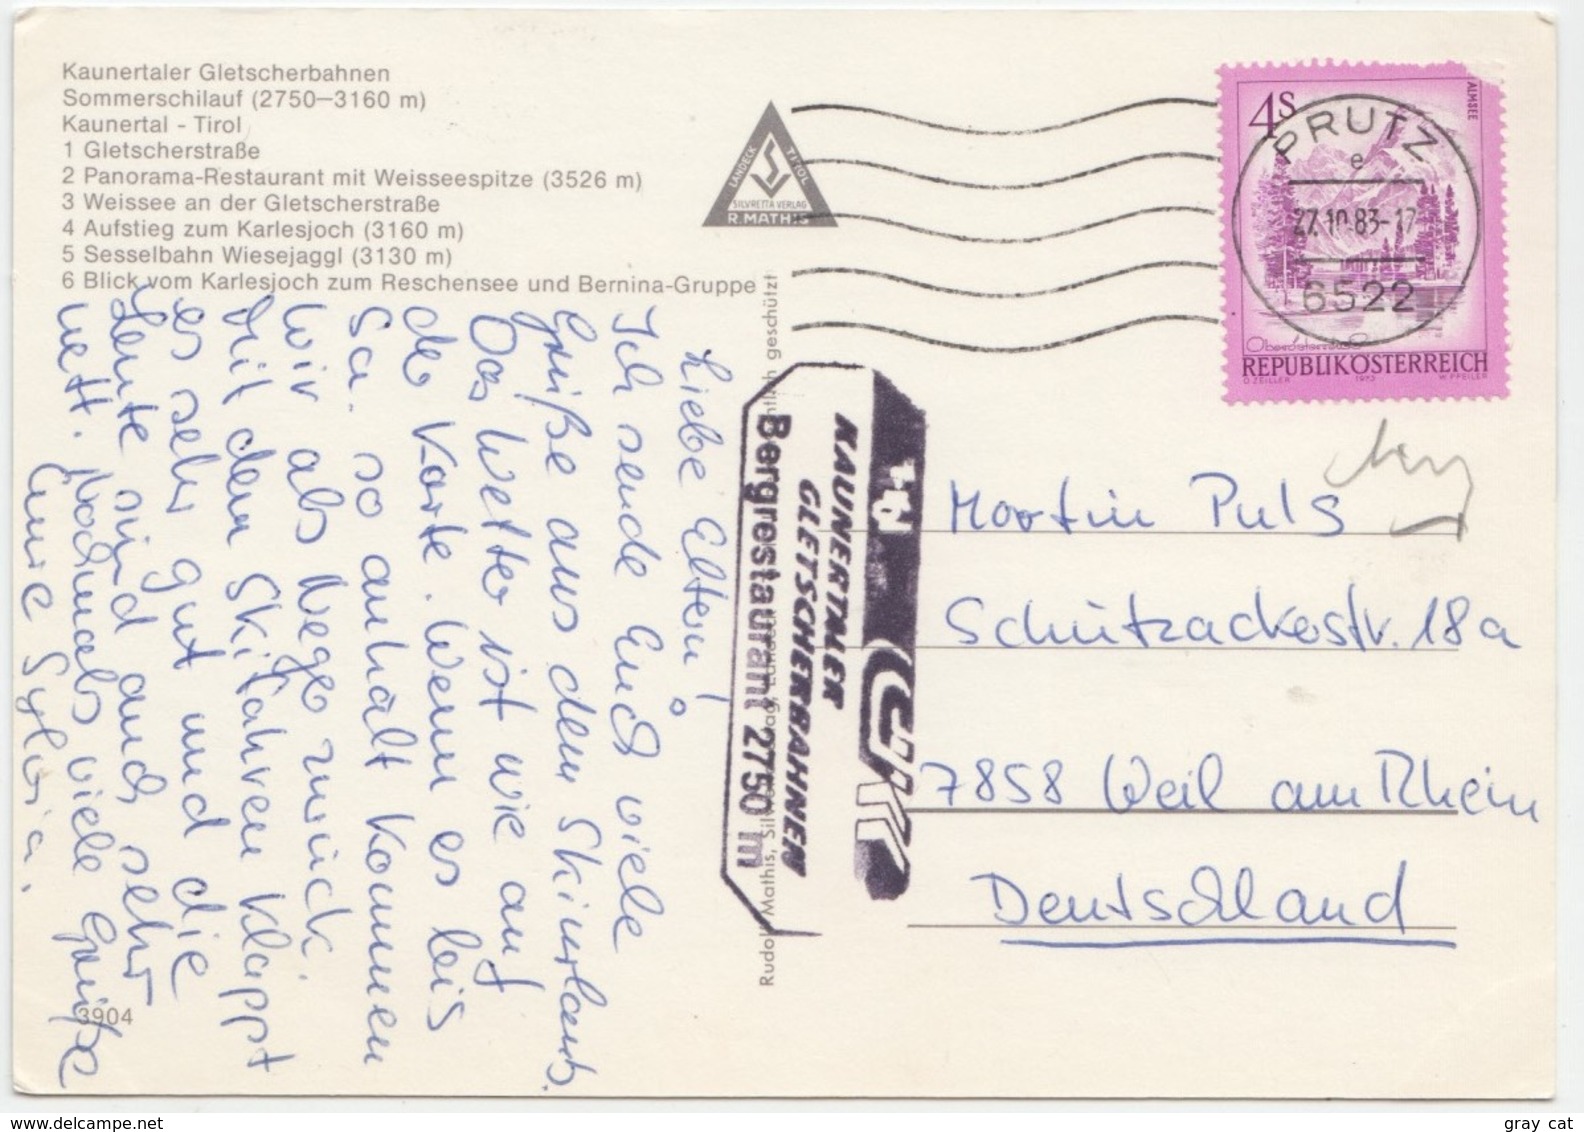 Kaunertaler Gletscherbahnen
Sommerschilauf (2750—3160 m)
Kaunertal - Tirol
1 Gletscherstraße
2 Panorama-Restaurant mit Weisseespitze (3526 m)
3 Weissee an der Gletscherstraße
4 Aufstieg zum Karlesjoch (3160 m)
5 Sesselbahn Wiesejaggl (3130 m)
6 Blick vom Karlesjoch zum Reschensee und Bernina-Gruppe
LANDECK TIROL
SILVRETTA VERLAG
R. MATHIS
4S
ALMSEE
PRUTZ
e
27.10.83-17
6522
Oberösterreich
REPUBLIK ÖSTERREICH
D. ZEILLER 1973 W. PFEILER
Liebe Eltern!
Ich sende Euch viele
Grüße aus dem Skiurlaub.
Das Wetter ist wie auf
der Karte. Wenn es bis
Sa. so anhält kommen
wir als Neger zurück.
Mit dem Skifahren klappt
es sehr gut und die
Leute sind auch sehr
nett. Nochmals viele Grüße
Eure Sylvia.
KAUNERTALER
GLETSCHERBAHNEN
Bergrestaurant 2750 m
Martin Puls
Schützackerstr. 18a
7858 Weil am Rhein
Deutschland
3904
gray cat